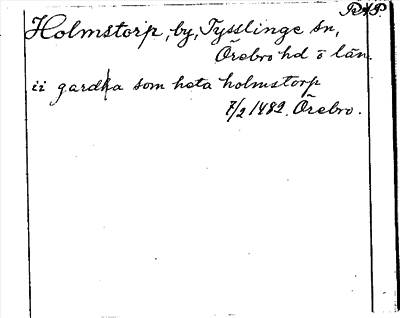 P.A.P.
Holmstorp, by, Tysslinge sn,
Örebro hd o län.
ii gardha som heta holmstorp
7/2 1482. Örebro.